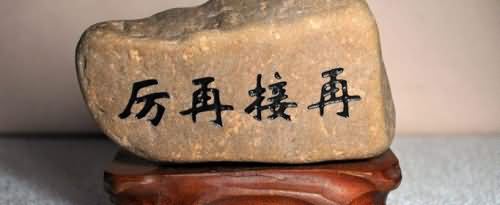 再接再厉